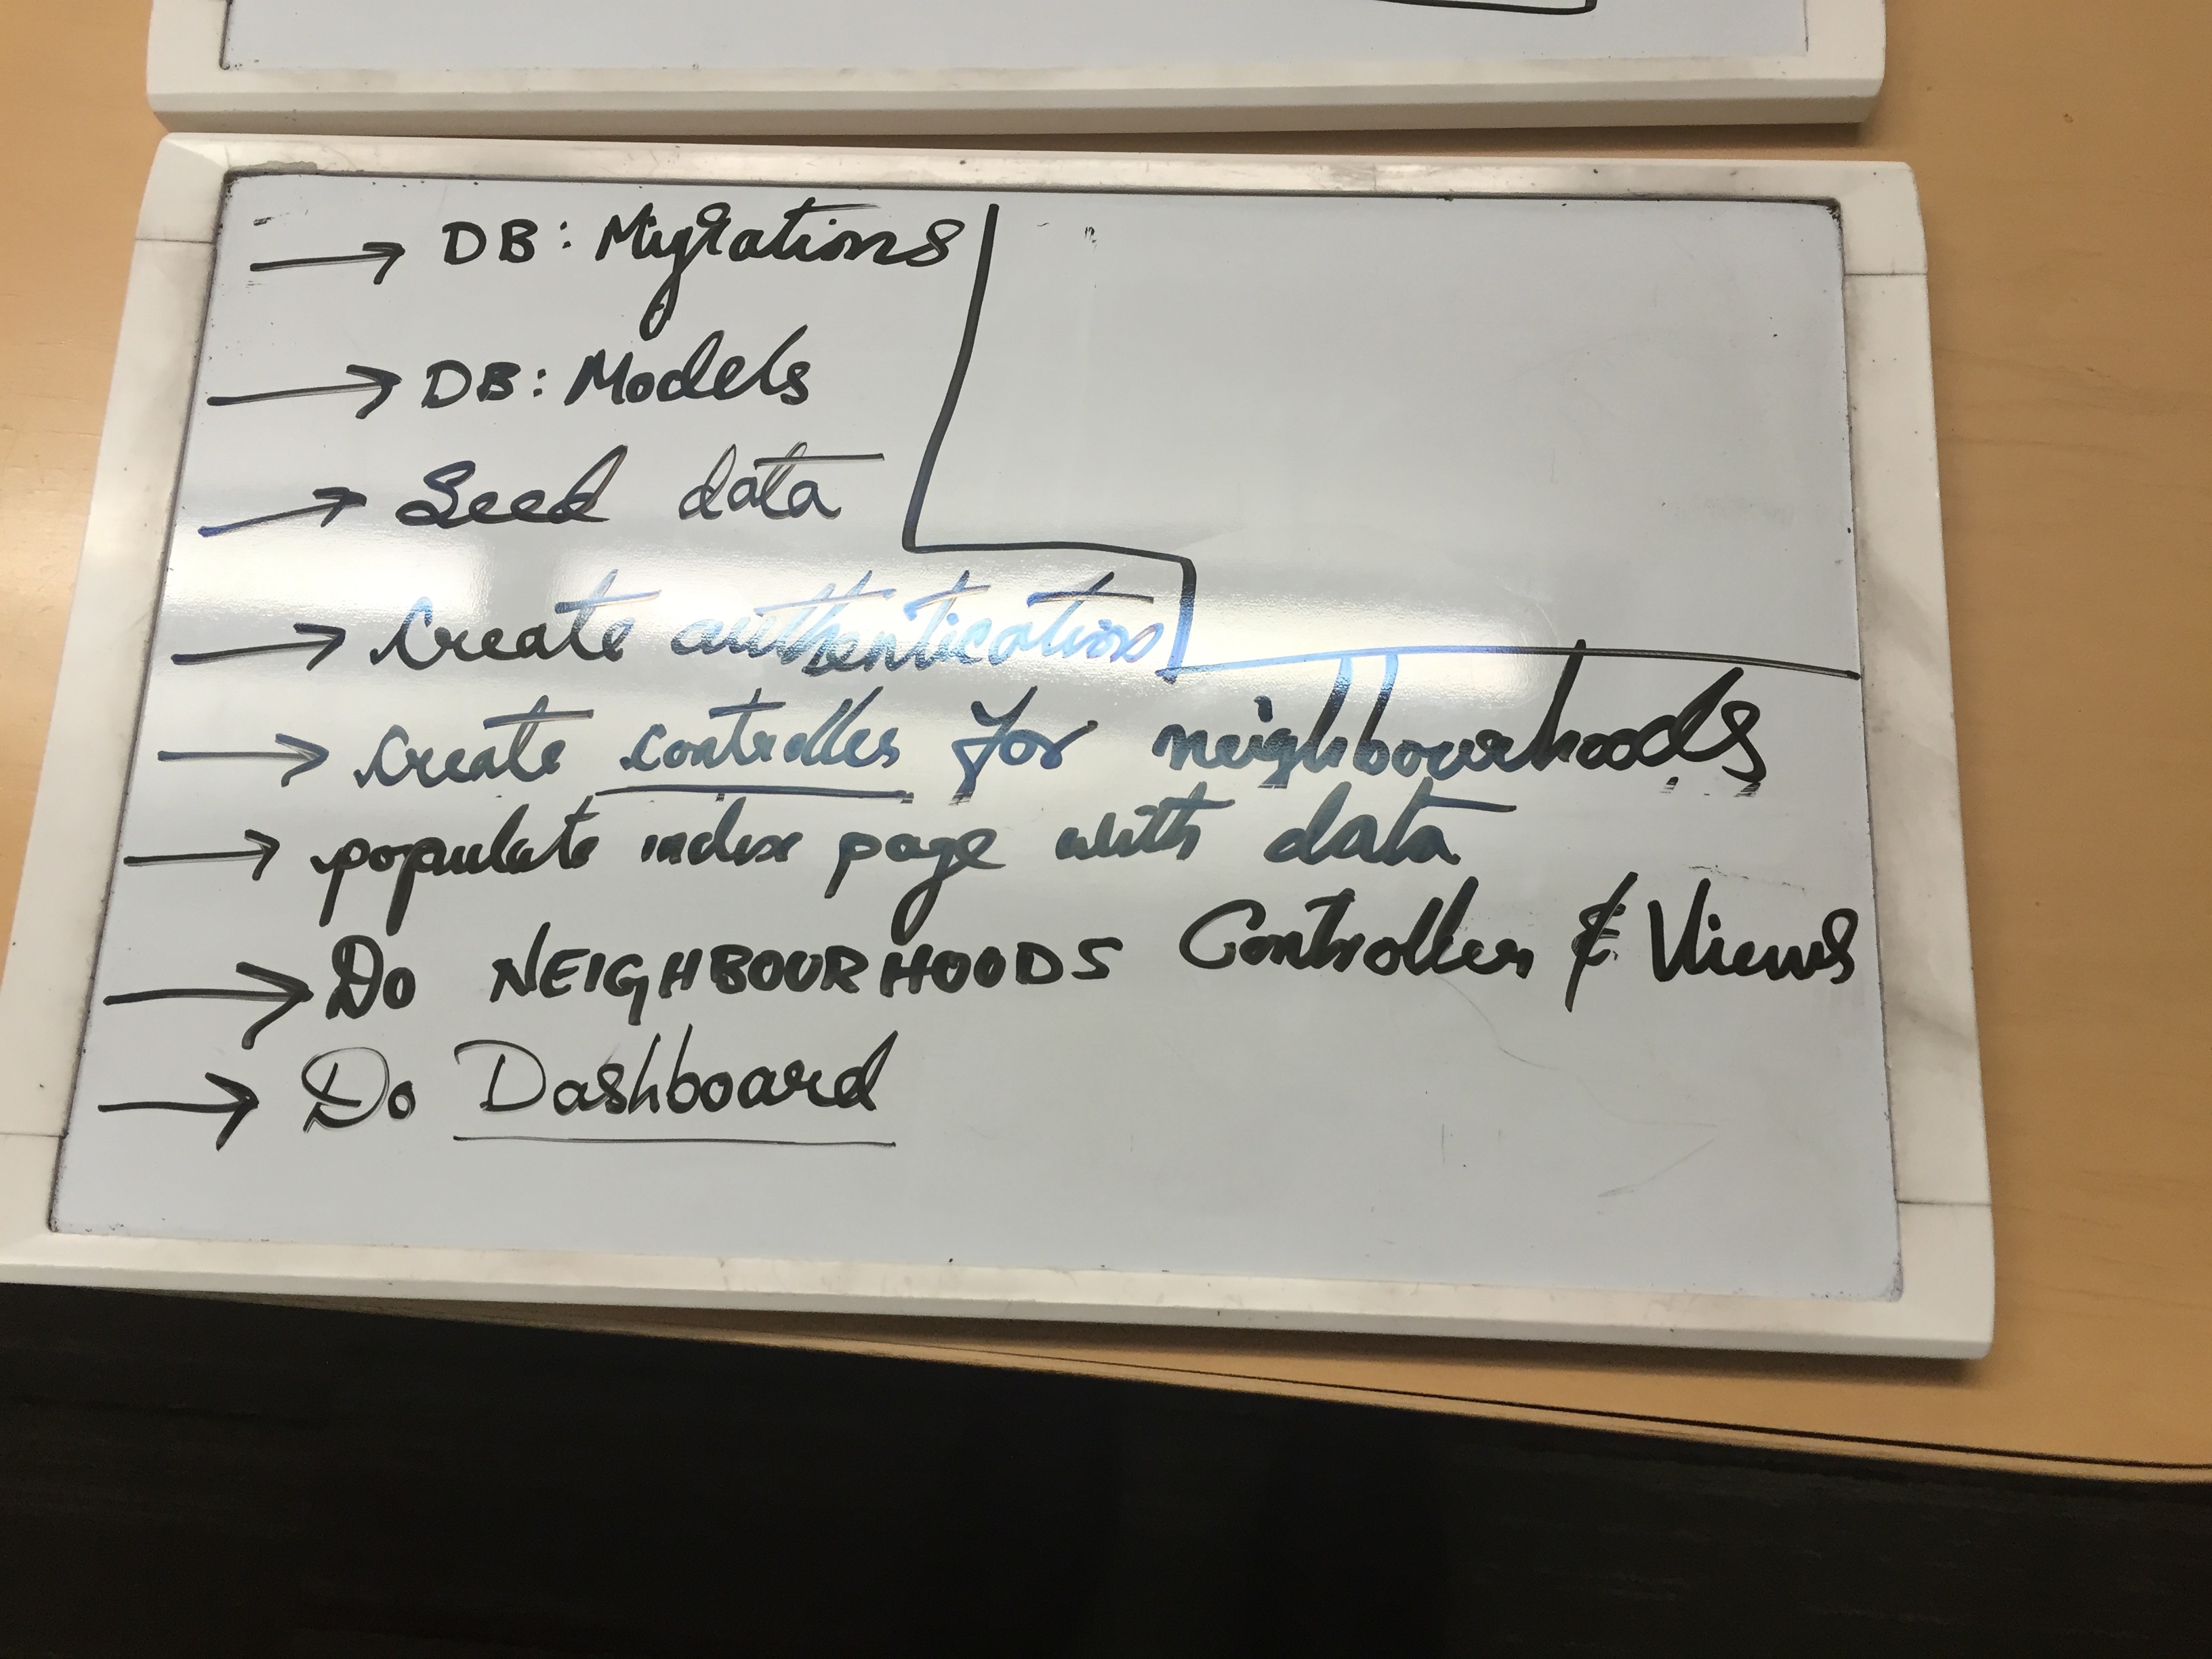 → DB: Migrations
→ DB: Models
→ Seed data
→ Create authentication
→ Create controller for neighbourhoods
→ populate index page with data
→ Do NEIGHBOURHOODS Controller & Views
→ Do Dashboard